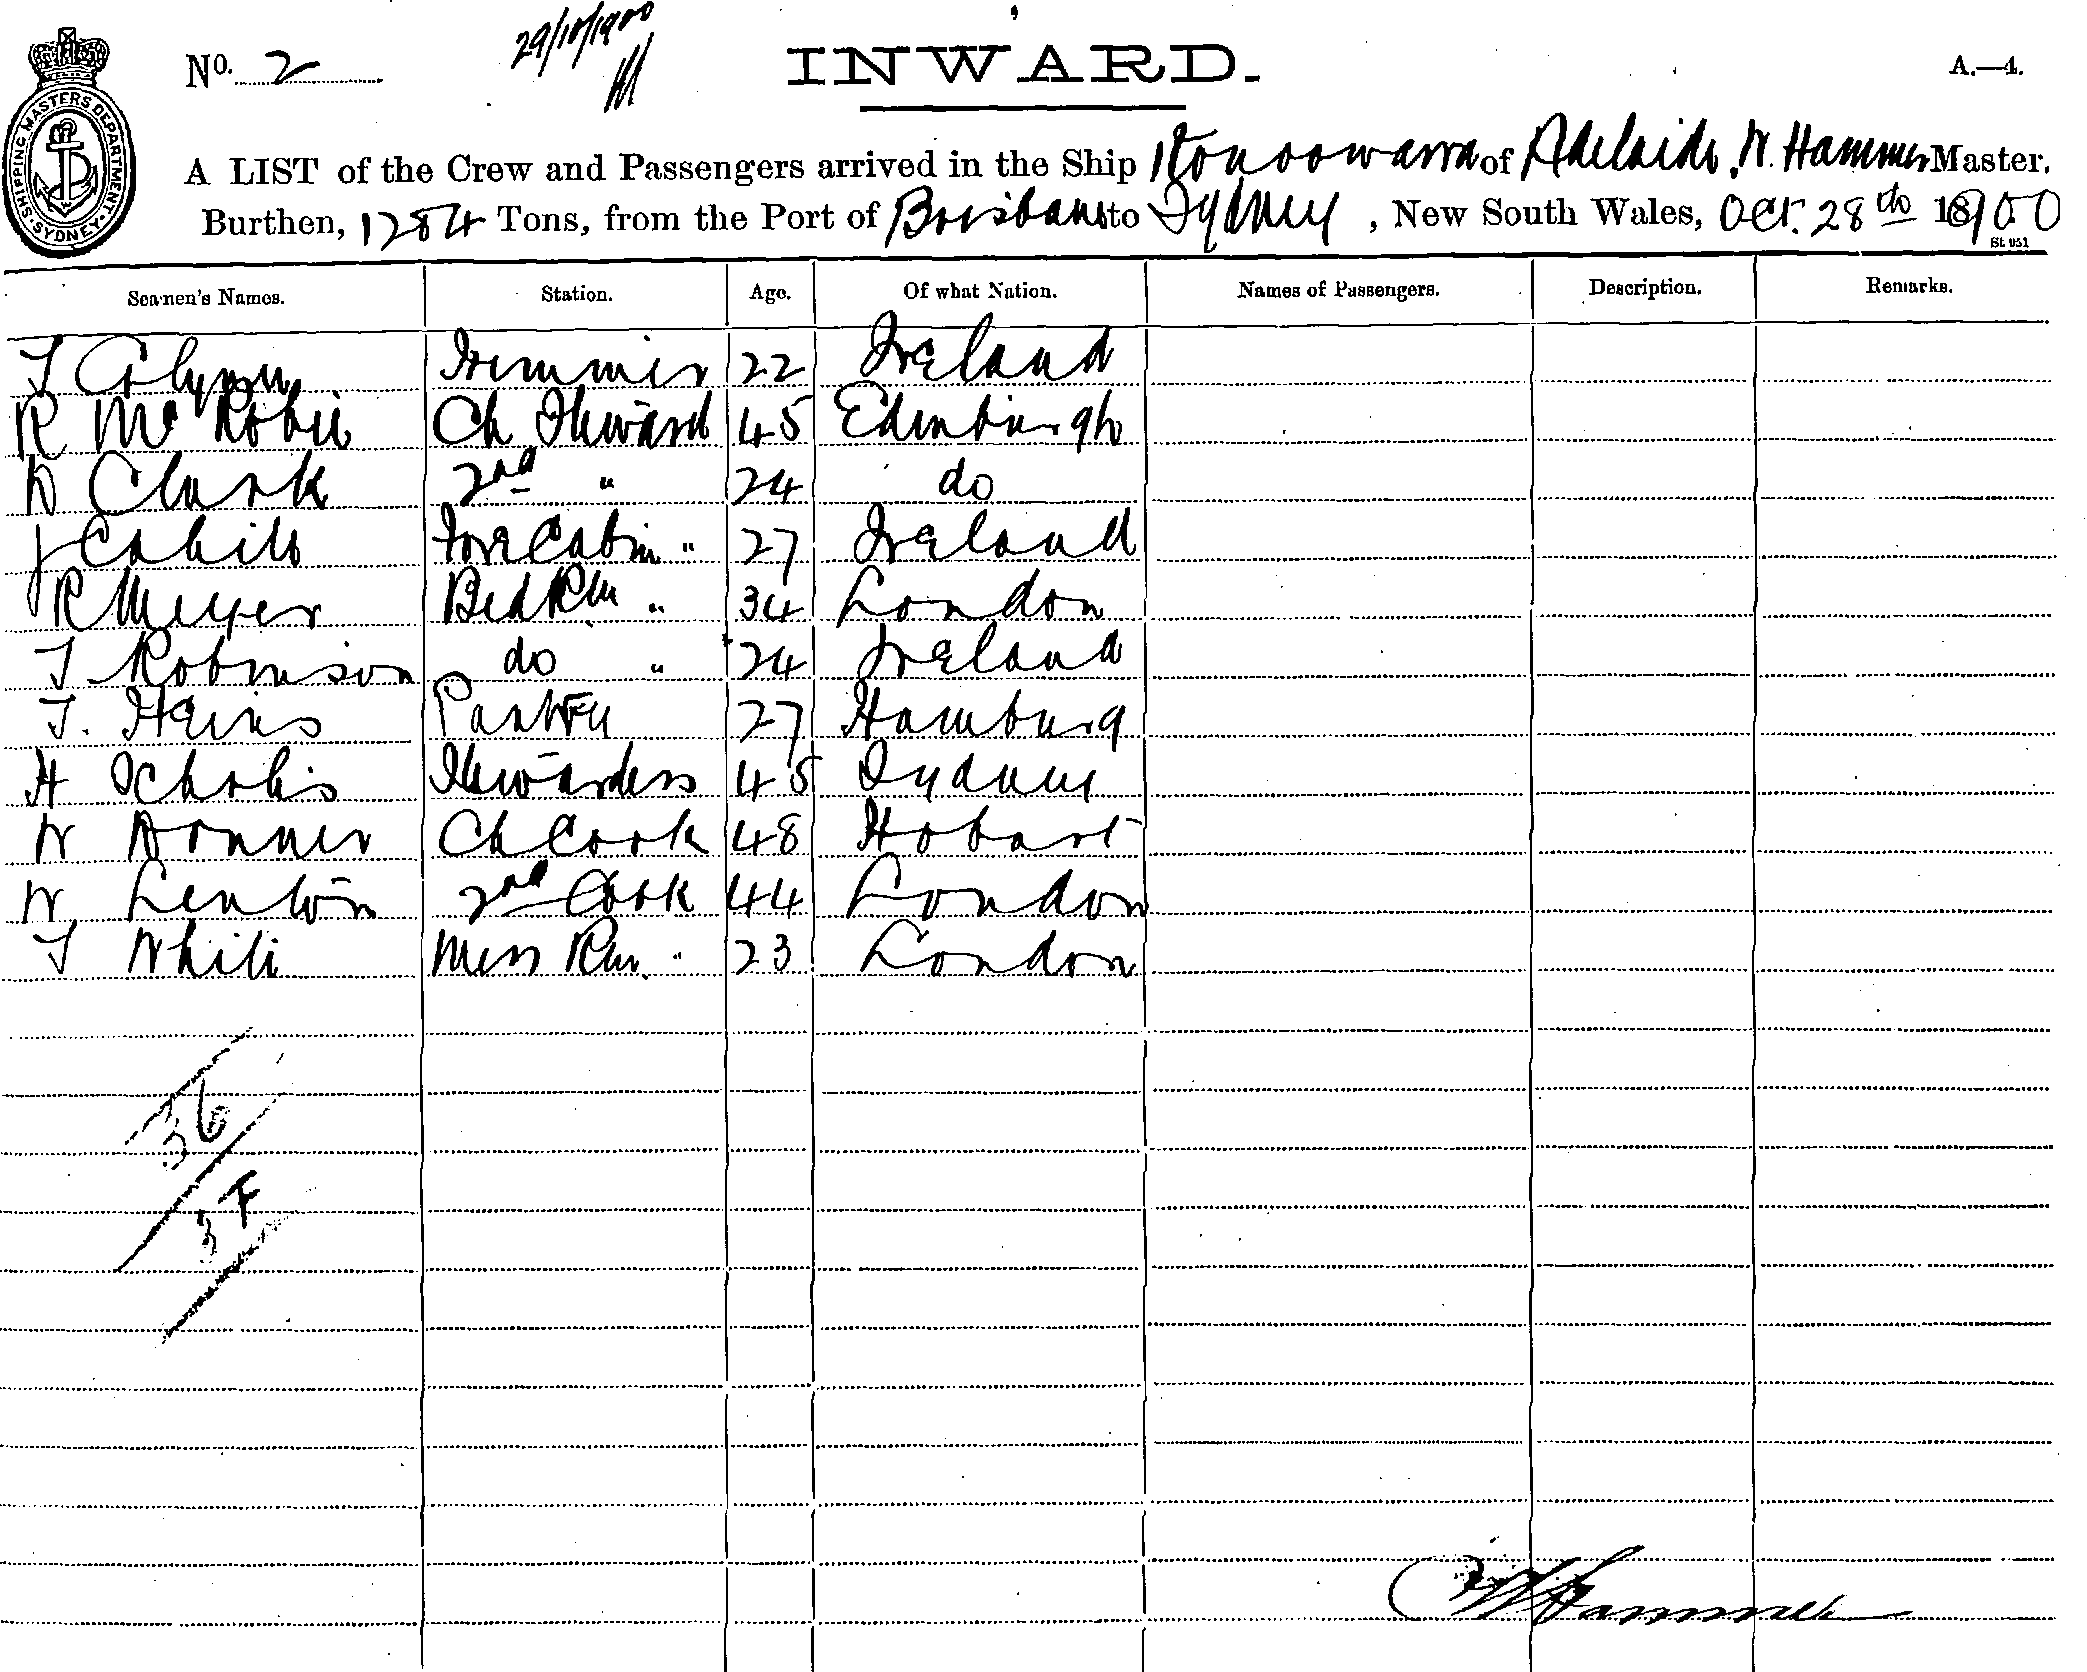 No. 2
29/10/1900
INWARD.
A.—4.
SHIPPING MASTERS DEPARTMENT
SYDNEY
A LIST of the Crew and Passengers arrived in the Ship Konoowarra of Adelaide, W. Hammer Master,
Burthen, 1284 Tons, from the Port of Brisbane to Sydney, New South Wales, Oct. 28th 1900
Seamen's Names. Station. Age. Of what Nation. Names of Passengers. Description. Remarks.
T Glynn Trimmer 22 Ireland
R McRobie Ch Steward 45 Edinburgh
D Clark 2nd " 24 do
J Cahill Fore Cabin " 27 Ireland
R Meyer Bed Rm " 34 London
T Robinson do " 24 Ireland
T. Heins Pantry 27 Hamburg
H Scholis Stewardess 45 Sydney
W Donner Ch Cook 48 Hobart
W. Lenton 2nd Cook 44 London
T White Mess Rm. " 23 London
36
3
W Hammer